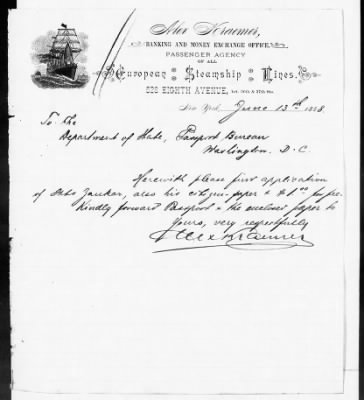 Alex Kraemer,
BANKING AND MONEY EXCHANGE OFFICE,
PASSENGER AGENCY
OF ALL
European Steamship Lines.
628 EIGHTH AVENUE,
New York, June 13th 1888
To the
Department of State, Passport Bureau
Washington. D. C
Herewith please find application
of also his citizen paper & for fee.
Kindly forward Passport & the enclosed paper to
Yours, very respectfully
Alex Kraemer